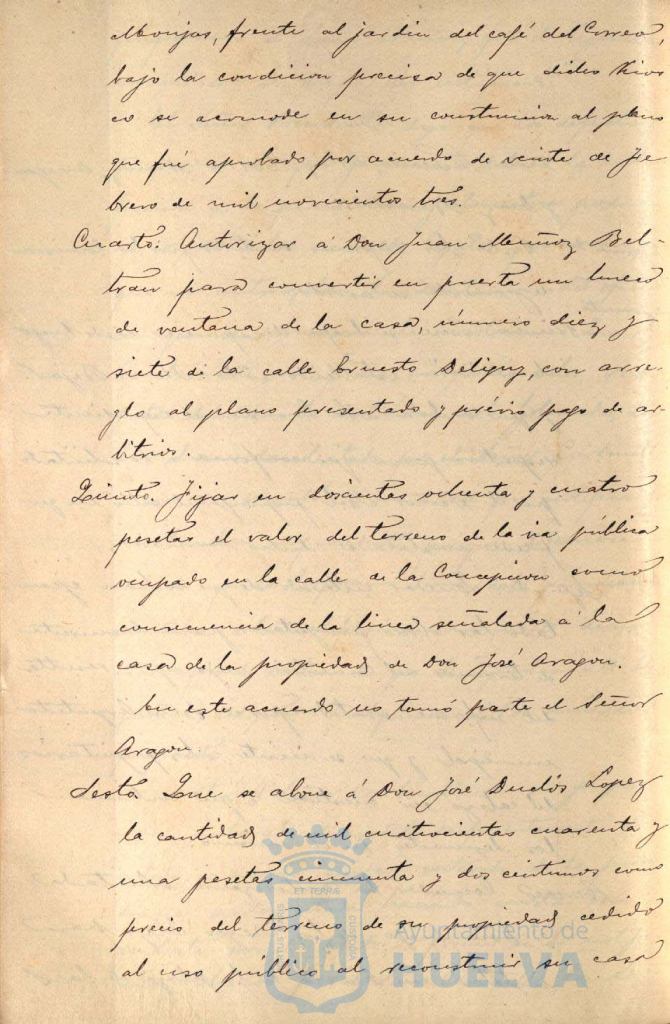 Monjas, frente al jardin del café del Correo,
bajo la condicion precisa de que dicho Kios
co se acomode en su construccion al plano
que fué aprobado por acuerdo de veinte de Fe
brero de mil novecientos tres.
Cuarto. Autorizar á Don Juan Muñoz Bel-
tran para convertir en puerta un hueco
de ventana de la casa, número diez y
siete de la calle Ernesto Deligny, con arre-
glo al plano presentado y prévio pago de ar-
bitrios.
Quinto. Fijar en doscientas ochenta y cuatro
pesetas el valor del terreno de la via pública
ocupado en la calle de la Concepcion como
consecuencia de la linea señalada á la
casa de la propiedad de Don José Aragon.
En este acuerdo no tomó parte el Señor
Aragon.
Sesto. Que se abone á Don José Duclós Lopez
la cantidad de mil cuatrocientas cuarenta y
una pesetas cincuenta y dos centimos como
precio del terreno de su propiedad cedido
al uso público al reconstruir su casa
ET TERRIS
Ayuntamiento de
HUELVA